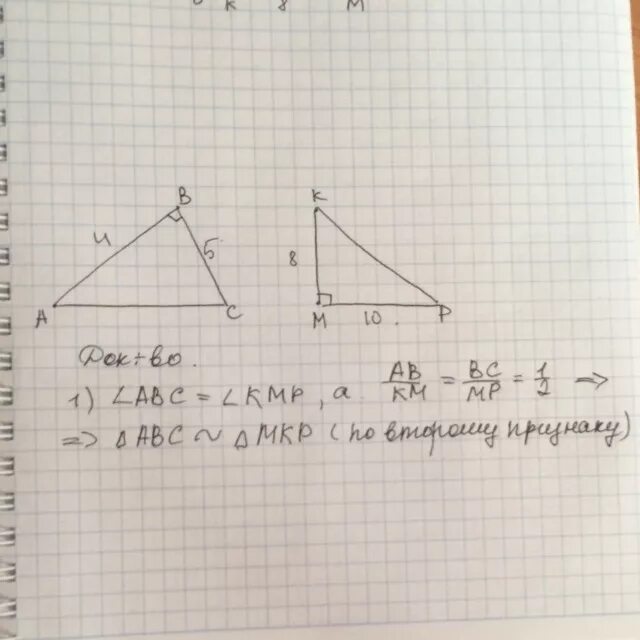 к 8 М
В
К
4
5
8
А
С
М
10.
Р
Док-во.
1) ∠ABC = ∠KMP, а AB/KM = BC/MP = 1/2 =>
=> △ABC ~ △MKP (по второму признаку)